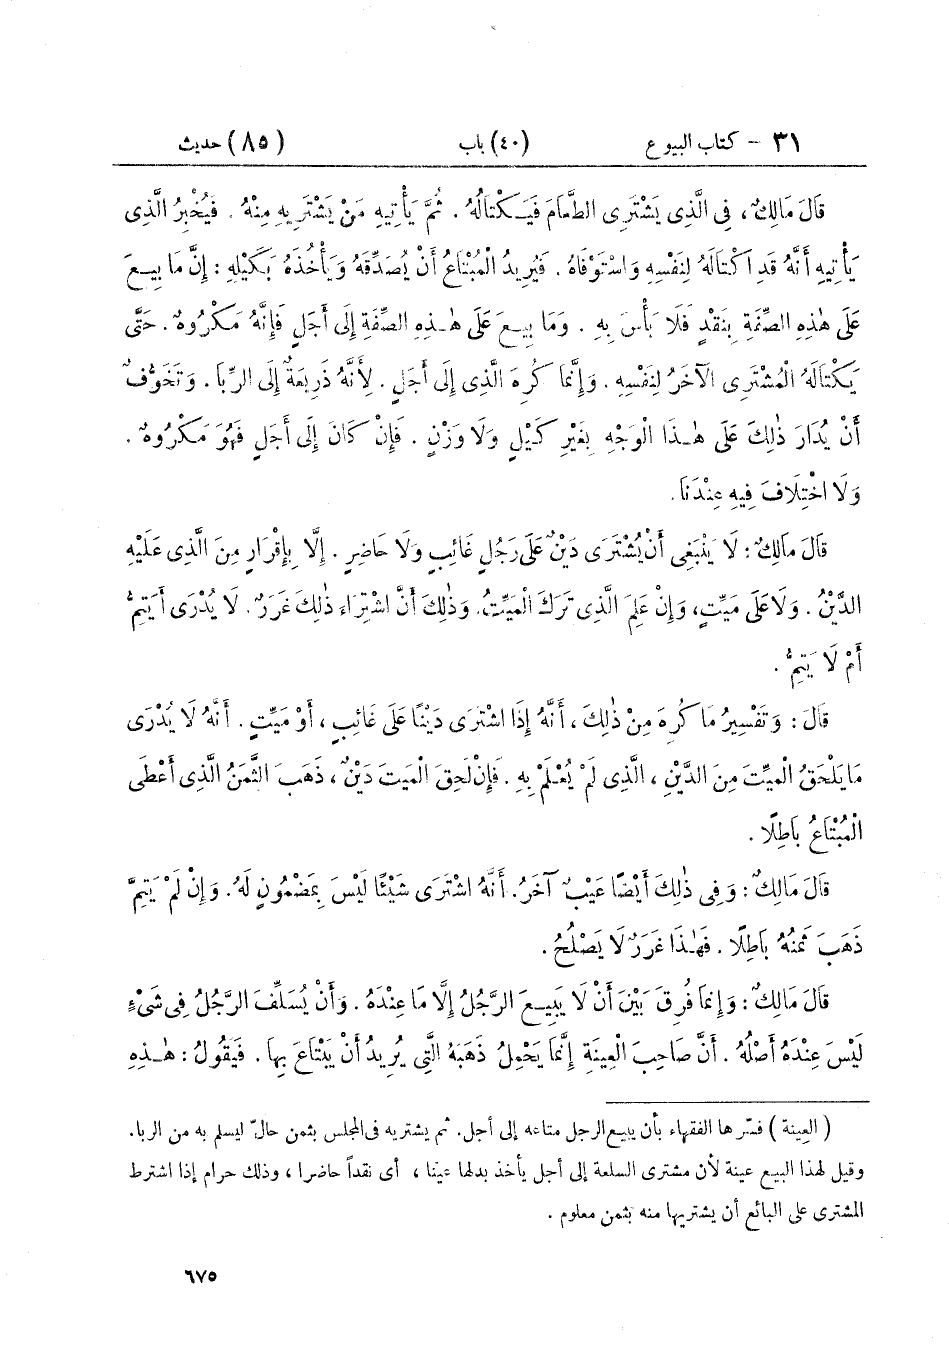 ٣١ – كتاب البيوع (٤٠) باب (٨٥) حديث
قَالَ مَالِكٌ، فِى الَّذِى يَشْتَرِى الطَّعَامَ فَيَكْتَالُهُ. ثُمَّ يَأْتِيهِ مَنْ يَشْتَرِيهِ مِنْهُ. فَيُخْبِرُ الَّذِى
يَأْتِيهِ أَنَّهُ قَدِ اكْتَالَهُ لِنَفْسِهِ وَاسْتَوْفَاهُ. فَيُرِيدُ الْمُبْتَاعُ أَنْ يُصَدِّقَهُ وَيَأْخُذَهُ بِكَيْلِهِ: إِنَّ مَا بِيعَ
عَلَى هٰذِهِ الصِّفَةِ بِنَقْدٍ فَلَا بَأْسَ بِهِ. وَمَا بِيعَ عَلَى هٰذِهِ الصِّفَةِ إِلَى أَجَلٍ فَإِنَّهُ مَكْرُوهٌ. حَتَّى
يَكْتَالَهُ الْمُشْتَرِى الْآخَرُ لِنَفْسِهِ. وَإِنَّمَا كُرِهَ الَّذِى إِلَى أَجَلٍ. لِأَنَّهُ ذَرِيعَةٌ إِلَى الرِّبَا. وَتَخَوُّفٌ
أَنْ يُدَارَ ذٰلِكَ عَلَى هٰذَا الْوَجْهِ بِغَيْرِ كَيْلٍ وَلَا وَزْنٍ. فَإِنْ كَانَ إِلَى أَجَلٍ فَهُوَ مَكْرُوهٌ.
وَلَا اخْتِلَافَ فِيهِ عِنْدَنَا.
قَالَ مَالِكٌ: لَا يَنْبَغِى أَنْ يُشْتَرَى دَيْنٌ عَلَى رَجُلٍ غَائِبٍ وَلَا حَاضِرٍ. إِلَّا بِإِقْرَارٍ مِنَ الَّذِى عَلَيْهِ
الدَّيْنُ. وَلَا عَلَى مَيِّتٍ، وَإِنْ عَلِمَ الَّذِى تَرَكَ الْمَيِّتُ. وَذٰلِكَ أَنَّ اشْتِرَاءَ ذٰلِكَ غَرَرٌ. لَا يُدْرَى أَيَتِمُّ
أَمْ لَا يَتِمُّ.
قَالَ: وَتَفْسِيرُ مَا كُرِهَ مِنْ ذٰلِكَ، أَنَّهُ إِذَا اشْتَرَى دَيْنًا عَلَى غَائِبٍ، أَوْ مَيِّتٍ. أَنَّهُ لَا يُدْرَى
مَا يَلْحَقُ الْمَيِّتَ مِنَ الدَّيْنِ، الَّذِى لَمْ يُعْلَمْ بِهِ. فَإِنْ لَحِقَ الْمَيِّتَ دَيْنٌ، ذَهَبَ الثَّمَنُ الَّذِى أَعْطَى
الْمُبْتَاعُ بَاطِلًا.
قَالَ مَالِكٌ: وَفِى ذٰلِكَ أَيْضًا عَيْبٌ آخَرُ. أَنَّهُ اشْتَرَى شَيْئًا لَيْسَ بِمَضْمُونٍ لَهُ. وَإِنْ لَمْ يَتِمَّ
ذَهَبَ ثَمَنُهُ بَاطِلًا. فَهٰذَا غَرَرٌ لَا يَصْلُحُ.
قَالَ مَالِكٌ: وَإِنَّمَا فُرِقَ بَيْنَ أَنْ لَا يَبِيعَ الرَّجُلُ إِلَّا مَا عِنْدَهُ. وَأَنْ يُسَلِّفَ الرَّجُلُ فِى شَىْءٍ
لَيْسَ عِنْدَهُ أَصْلُهُ. أَنَّ صَاحِبَ الْعِينَةِ إِنَّمَا يَحْمِلُ ذَهَبَهُ الَّتِى يُرِيدُ أَنْ يَبْتَاعَ بِهَا. فَيَقُولُ: هٰذِهِ
(العِينة) فسّرها الفقهاء بأن يبيع الرجل متاعه إلى أجل. ثم يشتريه فى المجلس بثمن حالّ ليسلم به من الربا.
وقيل لهذا البيع عينة لأن مشترى السلعة إلى أجل يأخذ بدلها عينا، أى نقداً حاضرا، وذلك حرام إذا اشترط
المشترى على البائع أن يشتريها منه بثمن معلوم.
٦٧٥